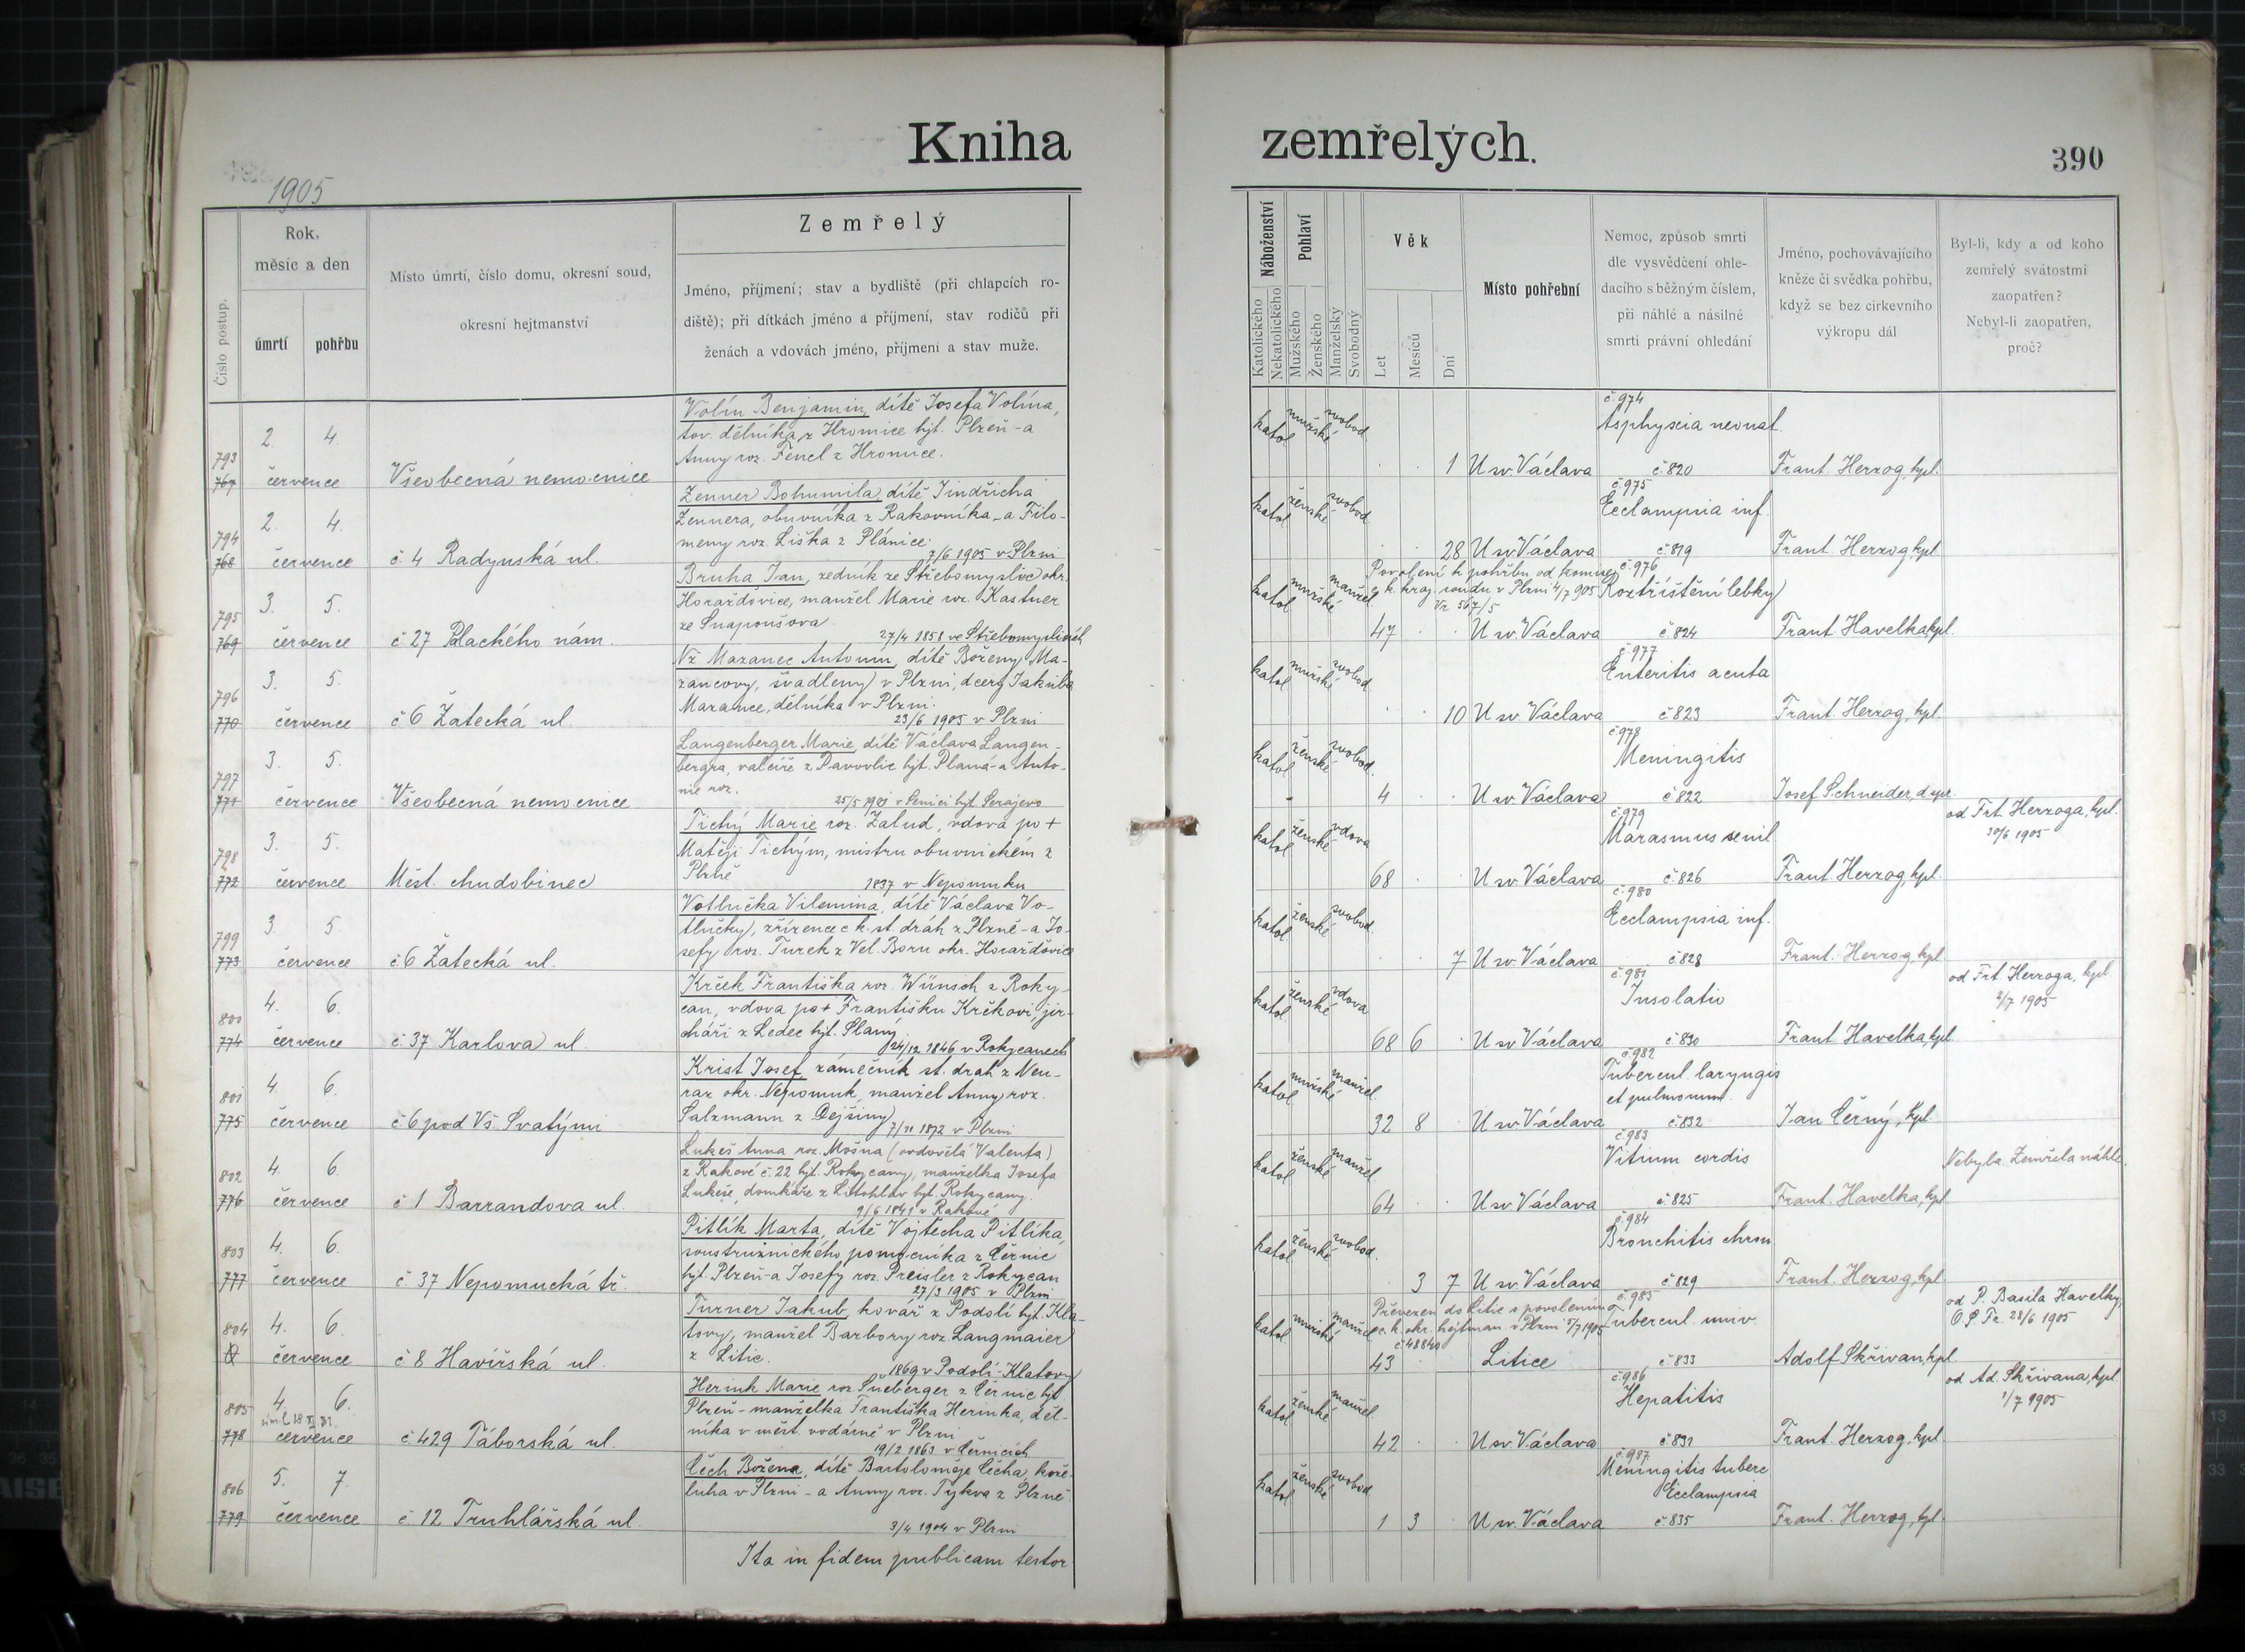 Kniha
zemřelých.
390
1905
Číslo postup.
Rok,
měsíc a den
úmrtí
pohřbu
Místo úmrtí, číslo domu, okresní soud,
okresní hejtmanství
Zemřelý
Jméno, příjmení; stav a bydliště (při chlapcích ro-
diště); při dítkách jméno a příjmení, stav rodičů při
ženách a vdovách jméno, příjmení a stav muže.
Náboženství
Katolického
Nekatolického
Pohlaví
Mužského
Ženského
Manželský
Svobodný
Věk
Let
Měsíců
Dní
Místo pohřební
Nemoc, způsob smrti
dle vysvědčení ohle-
dacího s běžným číslem,
při náhlé a násilné
smrti právní ohledání
Jméno, pochovávajícího
kněze či svědka pohřbu,
když se bez církevního
výkropu dál
Byl-li, kdy a od koho
zemřelý svátostmi
zaopatřen?
Nebyl-li zaopatřen,
proč?
793
767
2. 4.
července
Všeobecná nemocnice
Volín Benjamin, dítě Josefa Volína,
tov. dělníka z Hromice hjt. Plzeň - a
Anny roz. Fencl z Hromice.
katol mužské svobod
1 U sv. Václava
č. 974
Asphyxia neonat.
č. 820
Frant. Herzog, kpl.
794
768
2. 4.
července
č. 4 Radynská ul.
Zenner Bohumila, dítě Jindřicha
Zennera, obuvníka z Rakovníka - a Filo-
meny roz. Liška z Plánice.
7/6 1905 v Plzni
katol ženské svobod
28 U sv. Václava
č. 975
Ecclampsia inf.
č. 819
Frant. Herzog, kpl
795
769
3. 5.
července
č. 27 Palackého nám.
Bruha Jan, zedník ze Střebomyslic okr.
Horažďovice, manžel Marie roz. Kastner
ze Snopoušova
27/4 1858 ve Střebomyslicích
katol mužské manžel
Povolení k pohřbu od
c. k. kraj. soudu v Plzni 4/7 905
Vr 567/5
47 U sv. Václava
č. 976
Roztříštění lebky
č. 824
Frant. Havelka, kpl.
796
770
3. 5.
července
č. 6 Žatecká ul.
Nž Mazanec Antonín, dítě Boženy Ma-
zancovy, švadleny v Plzni, dcery Jakuba
Mazance, dělníka v Plzni.
23/6 1905 v Plzni
katol mužské svobod.
10 U sv. Václava
č. 977
Enteritis acuta
č. 823
Frant. Herzog, kpl.
797
771
3. 5.
července
Všeobecná nemocnice
Langenberger Marie, dítě Václava Langen-
bergra, valcíře z Pavovlic hjt. Planá - a Anto-
nie roz.
25/5 1901 v Senici hjt. Serajevo
katol ženské svobod.
4 U sv. Václava
č. 978
Meningitis
č. 822
Josef Schneider,
798
772
3. 5.
července
Měst. chudobinec
Tichý Marie roz. Žalud, vdova po +
Matěji Tichým, mistru obuvnickém z
Plzně
1837 v Nepomuku
katol ženské vdova
68 U sv. Václava
č. 979
Marasmus senil
č. 826
Frant. Herzog, kpl.
od Frt. Herzoga, kpl.
30/6 1905
799
773
3. 5.
července
č. 6 Žatecká ul.
Votlučka Vilemína, dítě Václava Vo-
tlučky, zřízence c. k. st. dráh z Plzně - a Jo-
sefy roz. Turek z Vel. Boru okr. Horažďovice
katol ženské svobod.
7 U sv. Václava
č. 980
Ecclampsia inf.
č. 828
Frant. Herzog, kpl
800
774
4. 6.
července
č. 37 Karlova ul.
Krček Františka roz. Wünsch z Roky-
can, vdova po + Františku Krčkovi, jir-
cháři z Ledec hjt. Slaný
24/12 1846 v Rokycanech
katol ženské vdova
68 6 U sv. Václava
č. 981
Insolatio
č. 830
Frant. Havelka, kpl
od Frt. Herzoga, kpl
2/7 1905
801
775
4. 6.
července
č. 6 pod Vš. Svatými
Krist Josef, zámečník st. drah z Neu-
raz okr. Nepomuk, manžel Anny roz.
Salzmann z Dejšiny
7/11 1872 v Plzni
katol mužské manžel.
32 8 U sv. Václava
č. 982
Tubercul. laryngis
et pulmonum
č. 832
Jan Černý, kpl.
802
776
4. 6.
července
č. 1 Barrandova ul.
Lukeš Anna roz. Mošna (ovdovělá Valenta)
z Rakové č. 22 hjt. Rokycany, manželka Josefa
Lukeše, domkáře z Litohlav hjt. Rokycany.
9/6 1841 v Rakové
katol ženské manžel.
64 U sv. Václava
č. 983
Vitium cordis
č. 825
Frant. Havelka, kpl
Nebyla. Zemřela náhle.
803
777
4. 6.
července
č. 37 Nepomucká tř.
Pitlík Marta, dítě Vojtěcha Pitlíka,
soustružnického pomocníka z Černic
hjt. Plzeň - a Josefy roz. Preisler z Rokycan
27/3 1905 v Plzni
katol ženské svobod.
3 7 U sv. Václava
č. 984
Bronchitis chron
č. 829
Frant. Herzog, kpl
804
4. 6.
července
č. 8 Havířská ul.
Turner Jakub, kovář z Podolí hjt. Kla-
tovy, manžel Barbory roz. Langmaier
z Litic.
1869 v Podolí-Klatovy
katol mužské manžel
Převezen do Litic s povolením
c. k. okr. hejtman. v Plzni 5/7 1905
č. 48840
43 Litice
č. 985
Tubercul. univ.
č. 833
Adolf Skřivan, kpl
od P. Basila Havelky,
O. P. Fr. 28/6 1905
805
778
4. 6.
července
č. 429 Táborská ul.
Herink Marie roz. Sneberger z Černic hjt
Plzeň - manželka Františka Herinka, děl-
níka v měst. vodárně v Plzni
19/2 1863 v Černicích
katol ženské manžel.
42 U sv. Václava
č. 986
Hepatitis
č. 831
Frant. Herzog, kpl.
od Ad. Skřivana, kpl.
1/7 1905
806
779
5. 7.
července
č. 12 Truhlářská ul.
Čech Božena, dítě Bartoloměje Čecha, kože-
luha v Plzni - a Anny roz. Tykva z Plzně.
3/4 1904 v Plzni
katol ženské svobod
1 3 U sv. Václava
č. 987
Meningitis tuberc
Ecclampsia
č. 835
Frant. Herzog, kpl.
Ita in fidem publicam testor